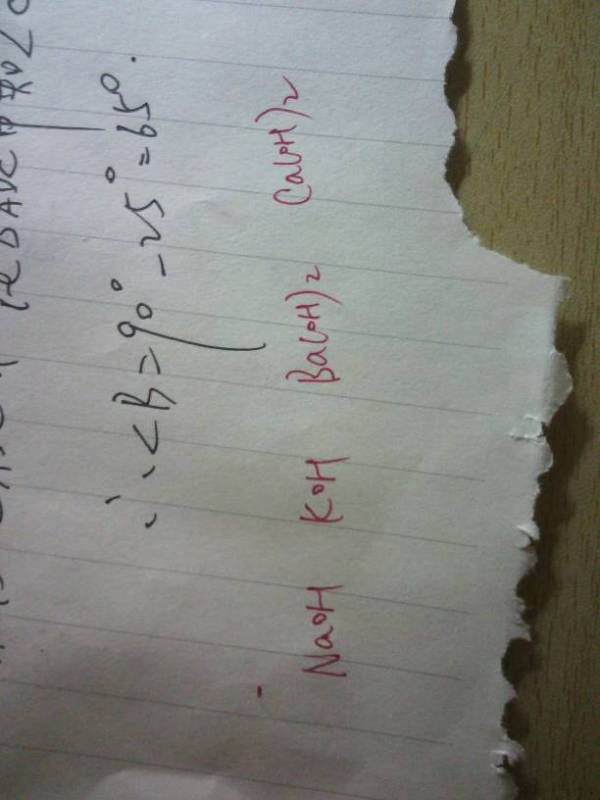 ∴∠B=90°-25°=65°.
NaOH KOH Ba(OH)2 Ca(OH)2